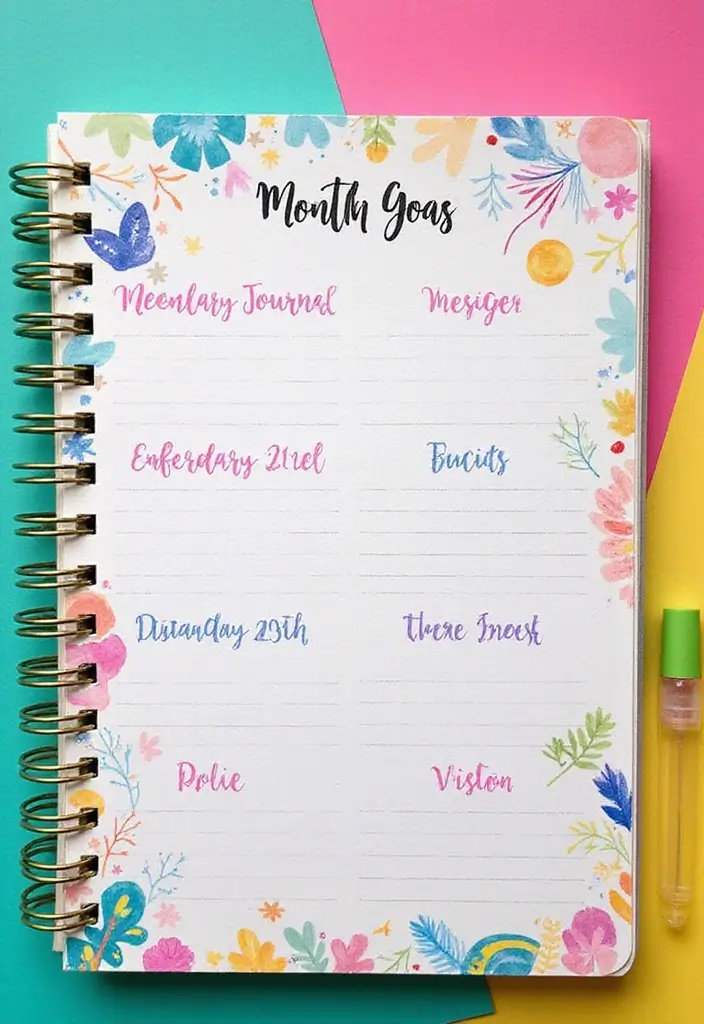 Month Goas
Meenlary Journal
Mesiger
Enferdary 21rel
Bucits
Dutanday 29th
There Inest
Rolie
Viston